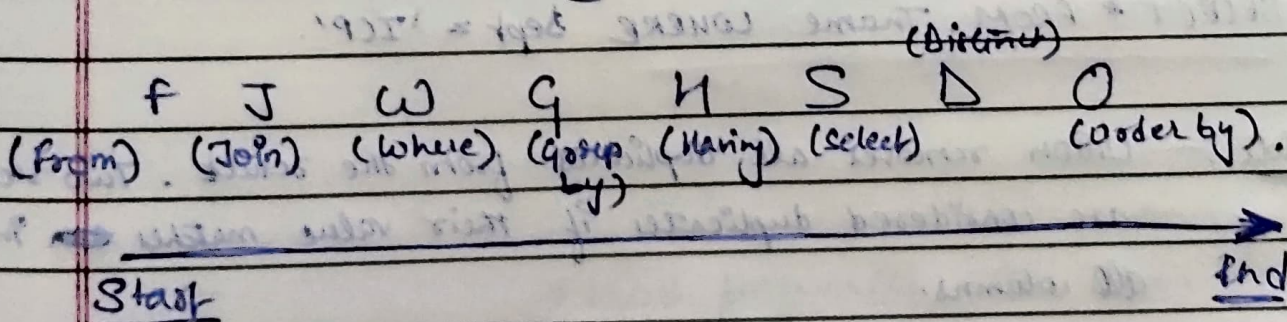 (Distinct)
F J W G H S D O
(From) (Join) (Where) (Group by) (Having) (Select) (Order by).
Start End